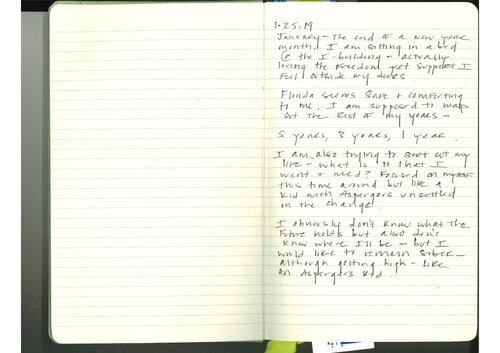 1.25.19
January - The end of a new year
month. I am sitting in a bed
@ the I-building - actually
loving the freedom yet support I
feel outside my doors.
Florida seems safe + comforting
to me. I am supposed to map
out the rest of my years -
5 years, 3 years, 1 year
I am also trying to sort out my
life - what is it that I
want + need? Focused on myself
this time around but like a
kid with Aspergers unsettled
on the change.
I obviously don't know what the
future holds but also don't
know where I'll be - but I
would like to remain sober -
although getting high - like
an Aspergers kid.